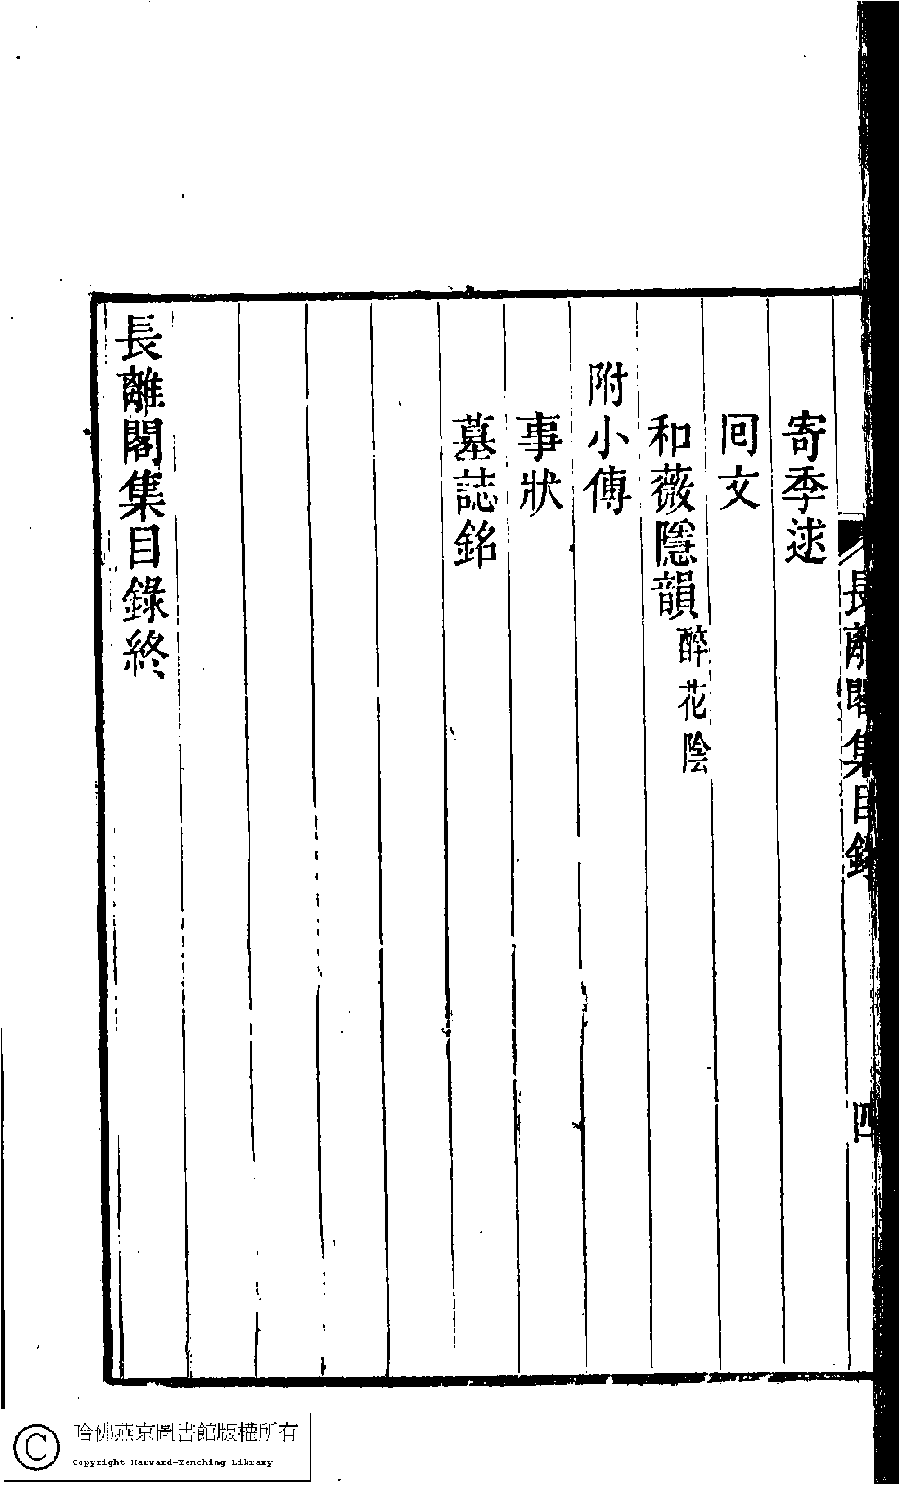 長離閣集目錄
四
寄季逑
囘文
和薇隱韻 醉花陰
附小傳
事狀
墓誌銘
長離閣集目錄終
哈佛燕京圖書館版權所有
Copyright Harvard-Yenching Library